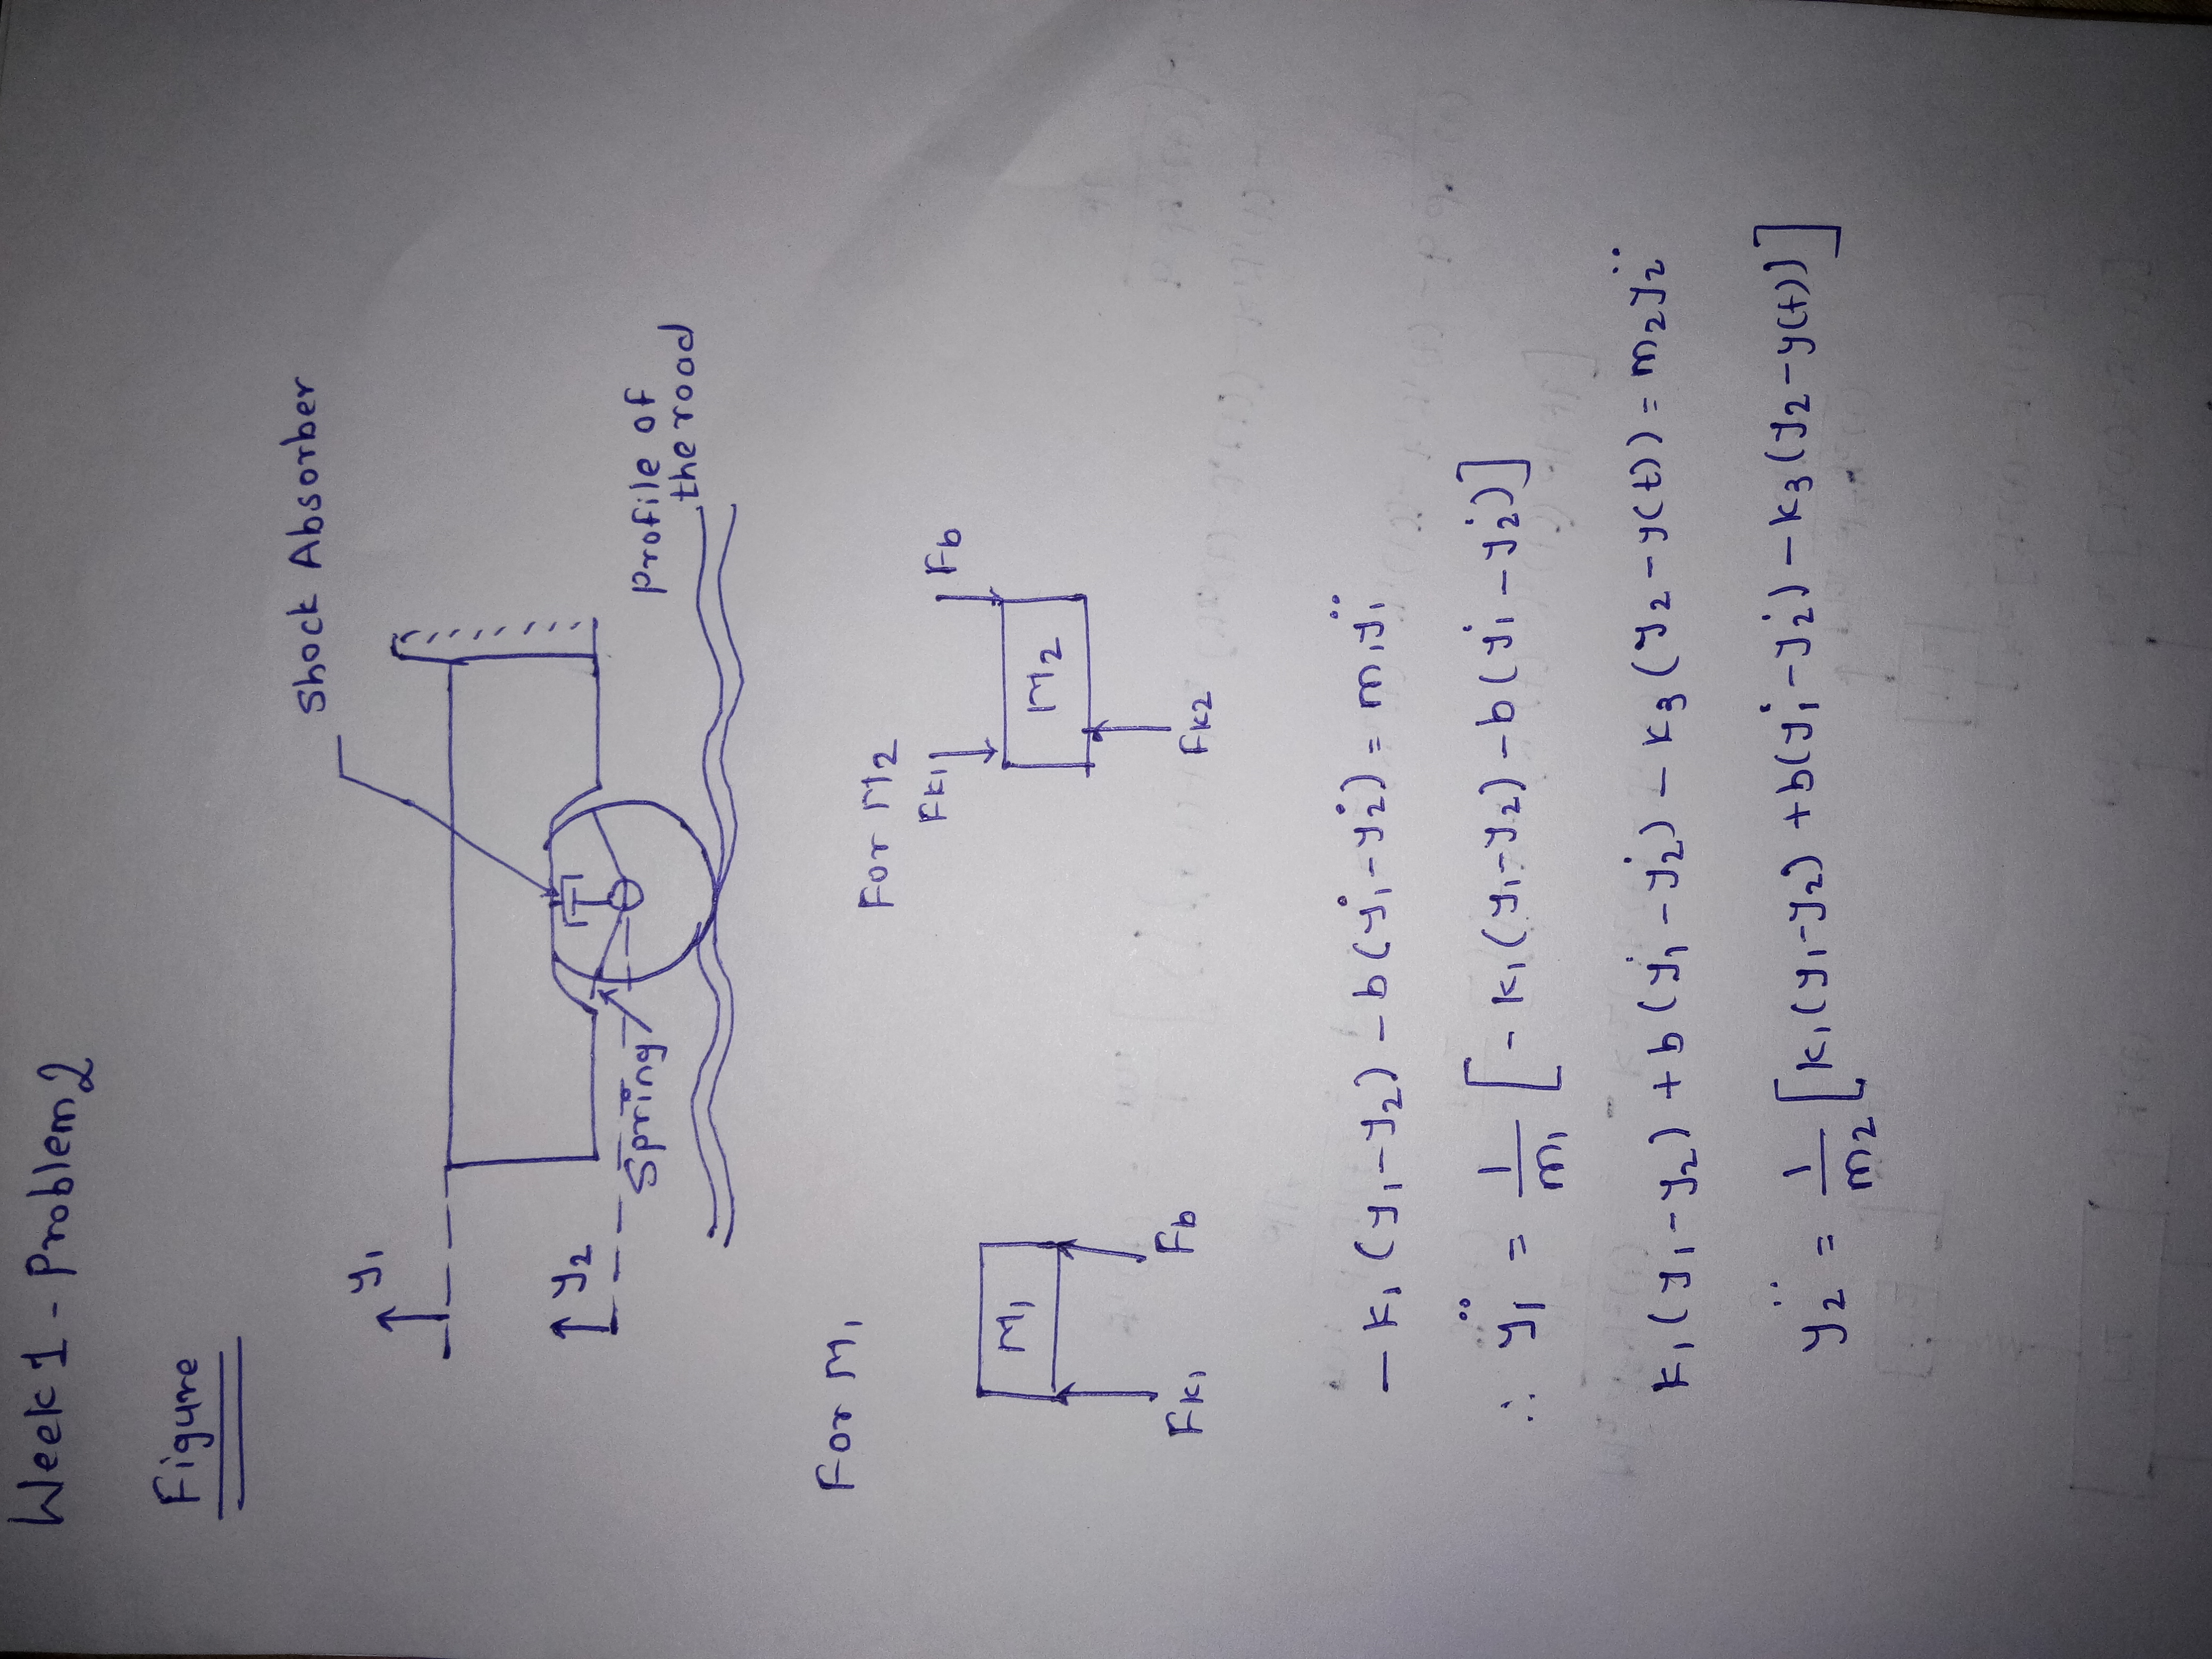 Week 1 - Problem 2
Figure
Shock Absorber
y₁
y₂
Spring
Profile of
the road
For M₁
For M₂
Fk₁
Fb
M₁
M₂
Fk₁
Fb
Fk2
- k₁ (y₁-y₂) - b(ẏ₁-ẏ₂) = m₁ÿ₁
∴ ÿ₁ = 1/m₁ [- k₁(y₁-y₂) - b(ẏ₁-ẏ₂)]
k₁(y₁-y₂) + b(ẏ₁-ẏ₂) - k₃(y₂-y(t)) = m₂ÿ₂
ÿ₂ = 1/m₂ [k₁(y₁-y₂) + b(ẏ₁-ẏ₂) - k₃(y₂-y(t))]